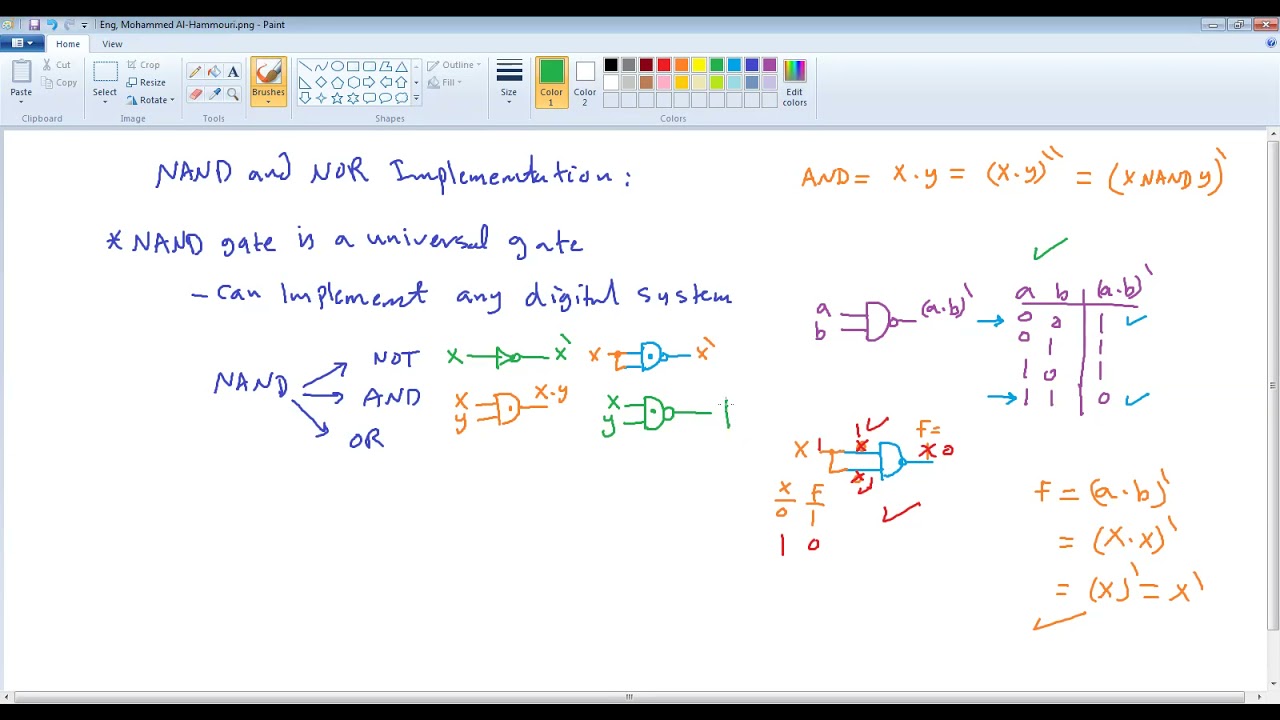 Eng, Mohammed Al-Hammouri.png - Paint
Home View
Paste
Cut
Copy
Clipboard
Select
Crop
Resize
Rotate
Image
Tools
Brushes
Shapes
Outline
Fill
Size
Color 1
Color 2
Edit colors
Colors
NAND and NOR Implementation:
AND = x . y = (x.y)`` = (x NAND y)`
* NAND gate is a universal gate
- Can Implement any digital system
a
b
(a.b)`
a b (a.b)`
0 0 1
0 1 1
1 0 1
1 1 0
NAND
NOT
x x`
x x`
AND
x
y
x.y
x
y
OR
x 1
1
x
x
F =
x 0
x F
0 1
1 0
F = (a.b)`
= (x.x)`
= (x)` = x`